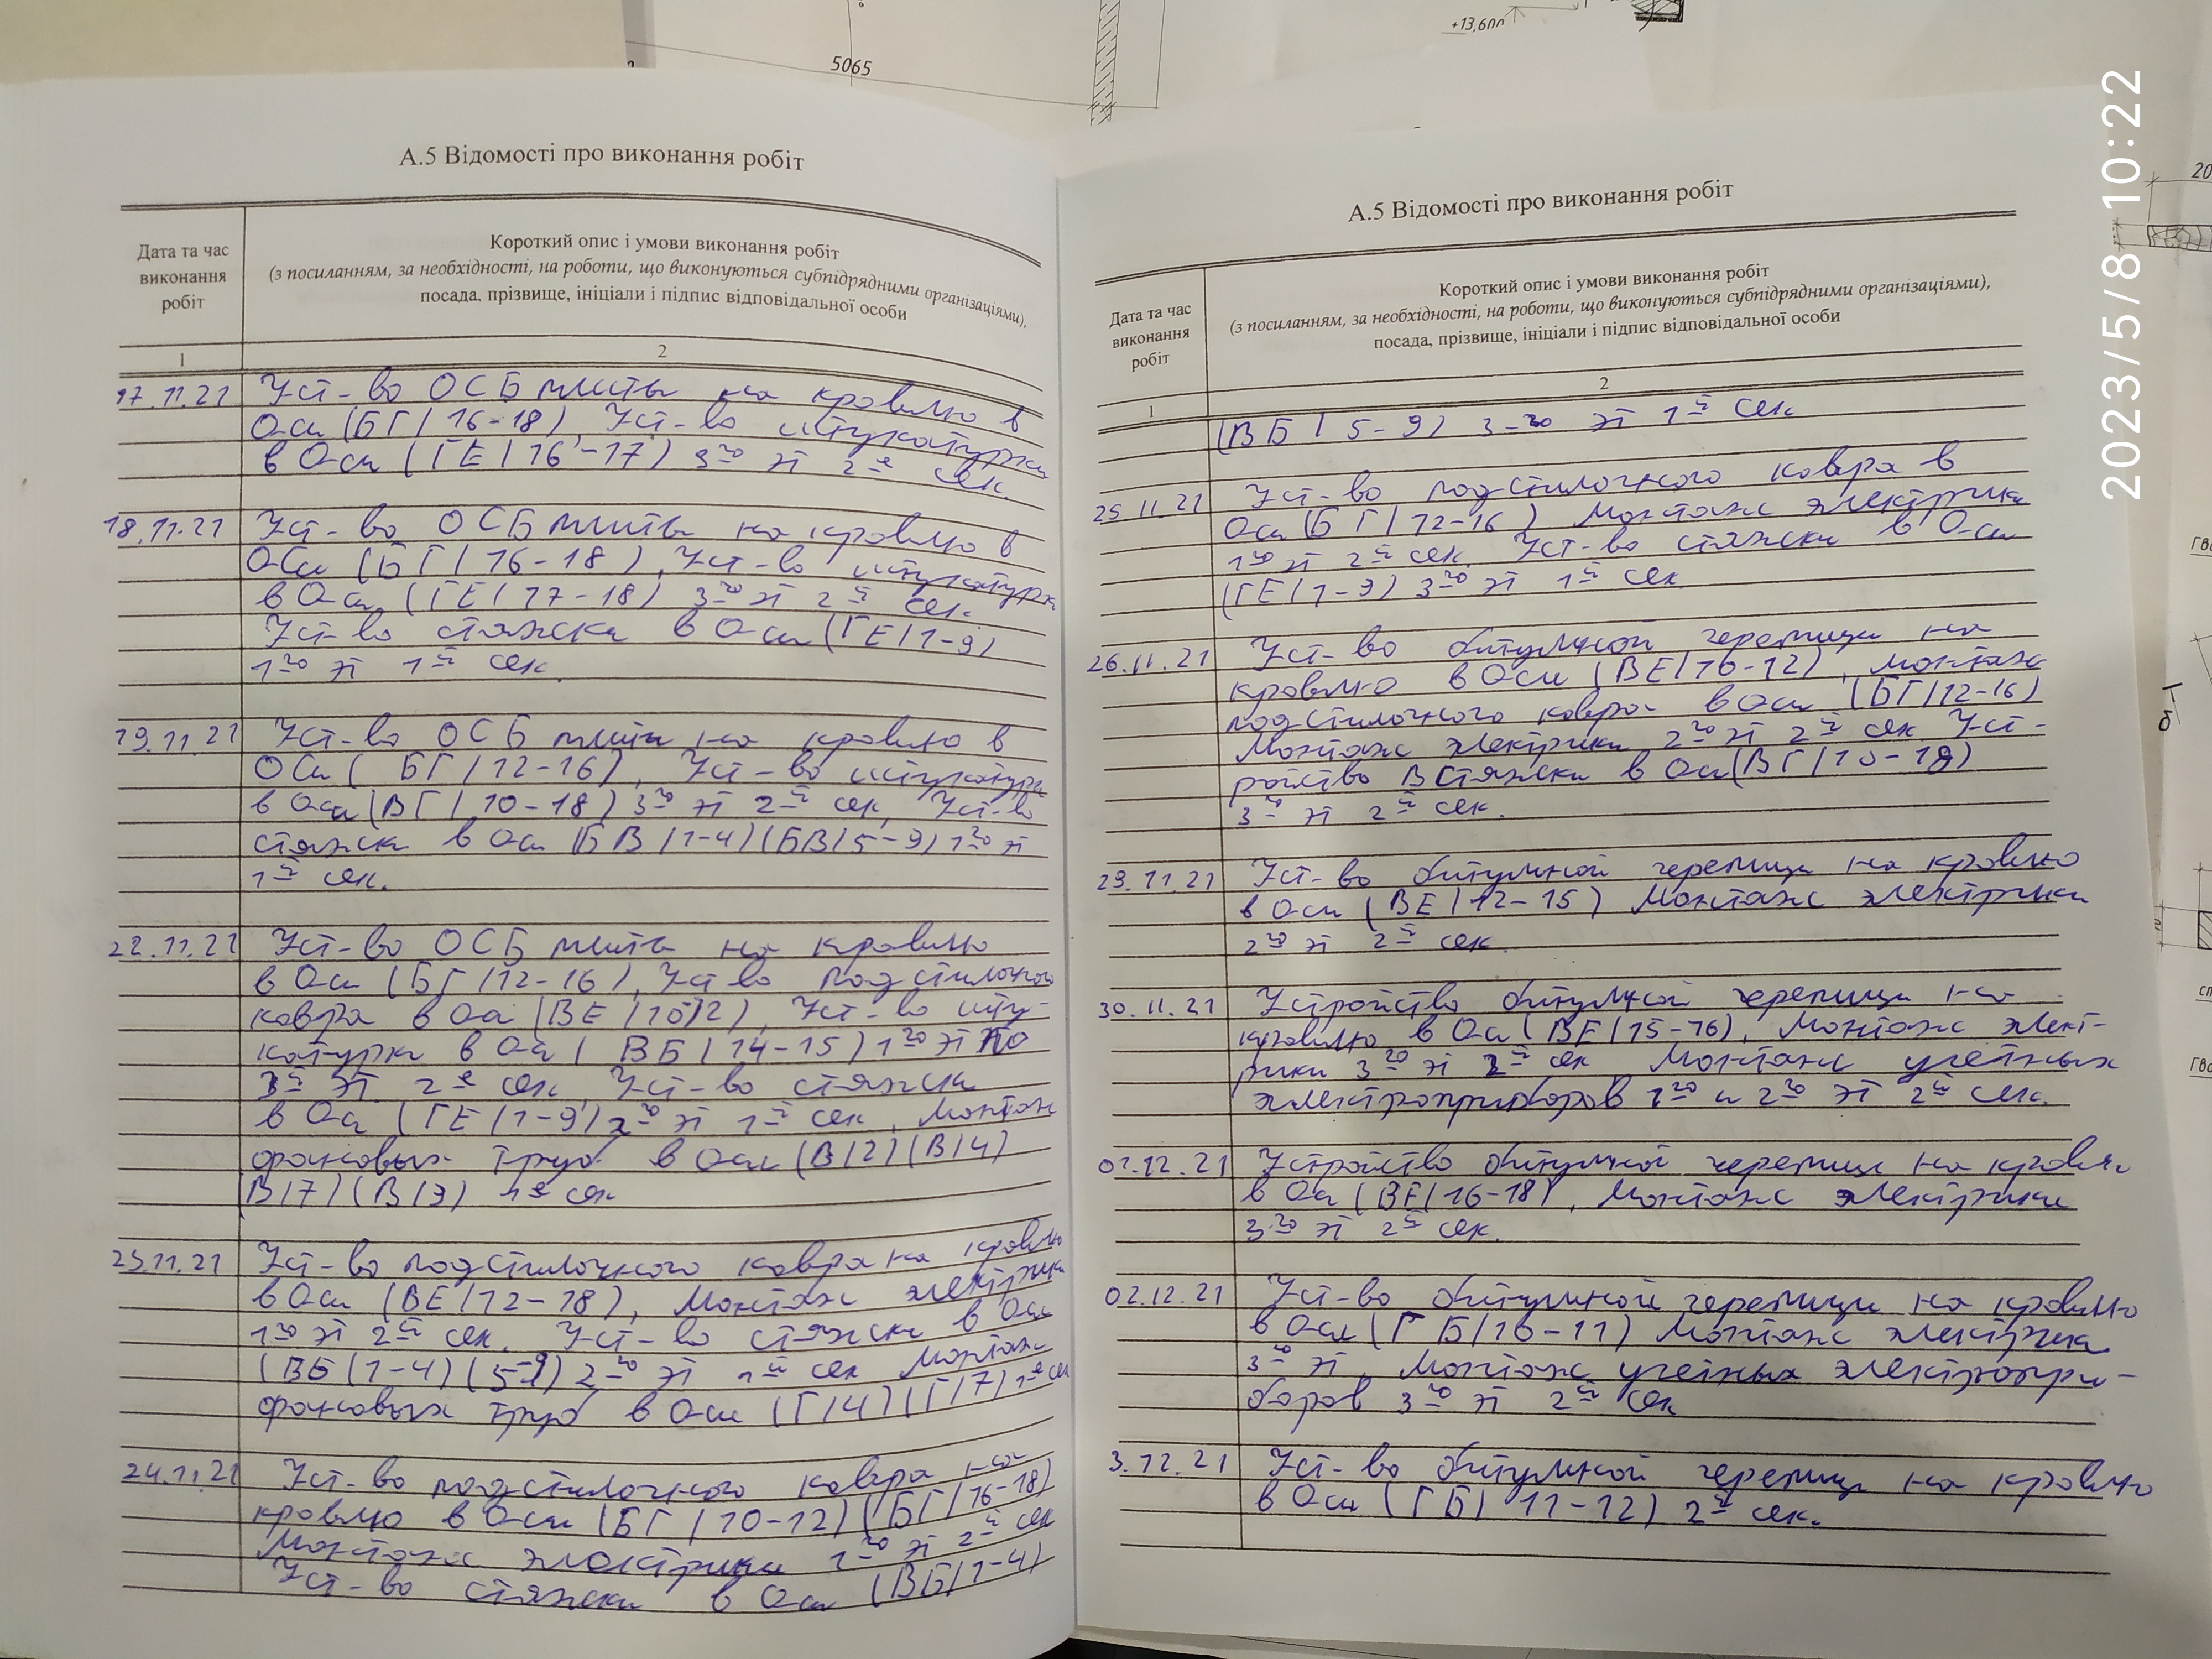 5065
+13,600
20
2023/5/8 10:22
А.5 Відомості про виконання робіт
Дата та час виконання робіт
Короткий опис і умови виконання робіт
(з посиланням, за необхідності, на роботи, що виконуються субпідрядними організаціями),
посада, прізвище, ініціали і підпис відповідальної особи
1
2
17.11.21 Уст-во ОСБ плиты на кровлю в
Оси (БГ/16-18) Уст-во штукатурки
в Оси (ГЕ/16-17) 3го эт 2й сек.
18.11.21 Уст-во ОСБ плиты на кровлю в
Оси (БГ/16-18), Уст-во штукатурки
в Оси (ГЕ/17-18) 3го эт 2й сек.
Уст-во стяжки в Оси (ГЕ/1-9)
1го эт 1й сек.
19.11.21 Уст-во ОСБ плиты на кровлю в
Оси (БГ/12-16), Уст-во штукатурки
в Оси (ВГ/10-18) 3го эт 2й сек, Уст-во
стяжки в Оси (БВ/1-4)(БВ/5-9) 1го эт
1й сек.
22.11.21 Уст-во ОСБ плиты на кровлю
в Оси (БГ/12-16), Уст-во подстилочного
ковра в Оси (ВЕ/10-12), Уст-во шту-
катурки в Оси (ВБ/14-15) 1го эт по
3й эт. 2й сек, Уст-во стяжки
в Оси (ГЕ/1-9) 2го эт 1й сек, Монтаж
фановых труб в Оси (В/2)(В/4)
В/7)(В/9) 1й сек
23.11.21 Уст-во подстилочного ковра на кровлю
в Оси (ВЕ/12-18), Монтаж электрики
1го эт 2й сек, Уст-во стяжки в Оси
(ВБ(1-4)(5-9) 2го эт 1й сек Монтаж
фановых труб в Оси (Г/4)(Г/7) 1й сек
24.11.21 Уст-во подстилочного ковра на
кровлю в Оси (БГ/10-12)(БГ/16-18)
Монтаж электрики 1го эт 2й сек
Уст-во стяжки в Оси (ВБ/1-4)
А.5 Відомості про виконання робіт
Дата та час виконання робіт
Короткий опис і умови виконання робіт
(з посиланням, за необхідності, на роботи, що виконуються субпідрядними організаціями),
посада, прізвище, ініціали і підпис відповідальної особи
1
2
(ВБ/5-9) 3-го эт 1й сек
25.11.21 Уст-во подстилочного ковра в
Оси (БГ/12-16) Монтаж электрики
1го эт 2й сек. Уст-во стяжки в Оси
(ГЕ/1-9) 3го эт 1й сек
26.11.21 Уст-во битумной черепицы на
кровлю в Оси (ВЕ/10-12), монтаж
подстилочного ковра в Оси (БГ/12-16)
Монтаж электрики 2го эт 2й сек Уст-
ройство стяжки в Оси (ВГ/10-18)
3й эт 2й сек.
29.11.21 Уст-во битумной черепицы на кровлю
в Оси (ВЕ/12-15) Монтаж электрики
2го эт 2й сек.
30.11.21 Устройство битумной черепицы на
кровлю в Оси (ВЕ/15-16), Монтаж элект-
рики 3го эт 2й сек, Монтаж учетных
электроприборов 1го и 2го эт 2й сек.
01.12.21 Устройство битумной черепицы на кровлю
в Оси (ВЕ/16-18), Монтаж электрики
3го эт 2й сек.
02.12.21 Уст-во битумной черепицы на кровлю
в Оси (ГБ/10-11) Монтаж электрики
3го эт, Монтаж учетных электропри-
боров 3го эт 2й сек
3.12.21 Уст-во битумной черепицы на кровлю
в Оси (ГБ/11-12) 2й сек.